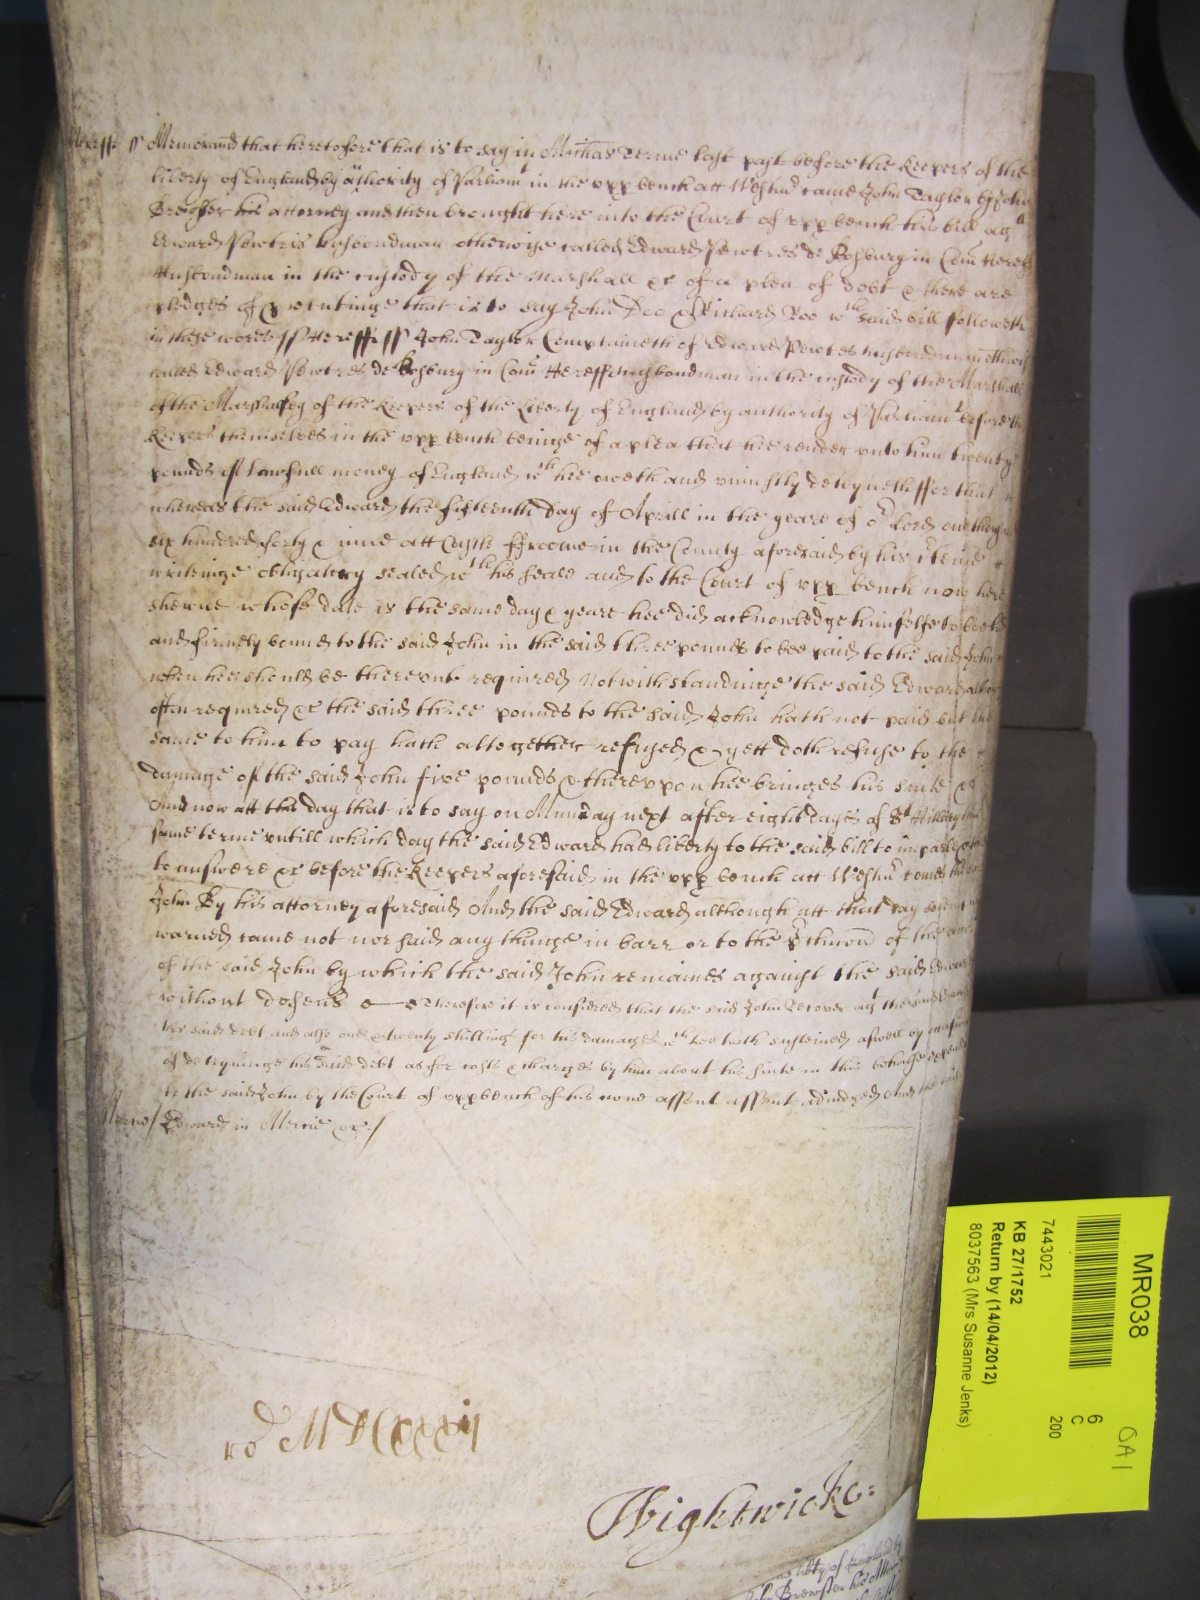 Hereff ss Memorand that heretofore that is to say in Michas Terme last past before the Keepers of the
liberty of England by authority of Parliamt in the upp bench att Westmr came John Taylor by John
Brewster his attorney and then brought here into the Court of upp bench his bill agt
Edward Pewtris husbondman otherwise called Edward Pewtres de Bosbury in Com Hereff
Husbondman in the custody of the Marshall &c of a plea of debt & there are
pledges of prosecutinge that is to say John Doo & Richard Roo wch said bill followeth
in these words ss Hereff ss John Taylor Complaineth of Edward Pewtres husbondman otherwise
called Edward Pewtres de Bosbury in Com Hereff husbondman in the custody of the Marshall
of the Marshalsey of the Keepers of the Liberty of England by authority of Parliamt before the
Keepers themselves in the upp bench beinge of a plea that hee render unto him twenty
pounds of lawfull money of England wch hee oweth and uniustly deteyneth ffor that
whereas the said Edward the fifteenth day of Aprill in the yeare of or Lord one thousand
six hundred forty & nine att Castle ffroome in the County aforesaid by his certeine
writeinge obligatory sealed wth his seale and to the Court of upp bench now here
shewne whose date is the same day & yeare hee did acknowledge himselfe to bee held
and firmely bound to the said John in the said three pounds to bee paid to the said John
when hee should be thereunto required Notwithstandinge the said Edward although
often required &c the said three pounds to the said John hath not paid but the
same to him to pay hath altogether refused & yett doth refuse to the
damage of the said John five pounds & thereupon hee bringes his suite &c
And now att this day that is to say on Munday next after eight dayes of St Hillary this
same terme untill which day the said Edward had liberty to the said bill to imparle & then
to answere &c before the Keepers aforesaid in the upp bench att Westmr comes the said
John By his attorney aforesaid And the said Edward although att that day solemnly
warned came not nor said any thinge in barr or to the of the
of the said John by which the said John remaines against the said Edward
without defens Therefore it is considered that the said John Recover agt the said Edward
his said debt and also one & twenty shillings for his damages wch hee hath susteined aswell by occasion
of deteyninge his said debt as for costs & charges by him about his suite in this behalfe expended
to the said John by the Court of upp bench of his owne assent assent adiudged And the said
Edward in Mercie &c /
ro MDCxxxij
Wightwicke:
liberty of England by
John Brewster his Attorney
MR038
7443021
KB 27/1752
Return by (14/04/2012)
8037563 (Mrs Susanne Jenks)
6
C
200
OA1